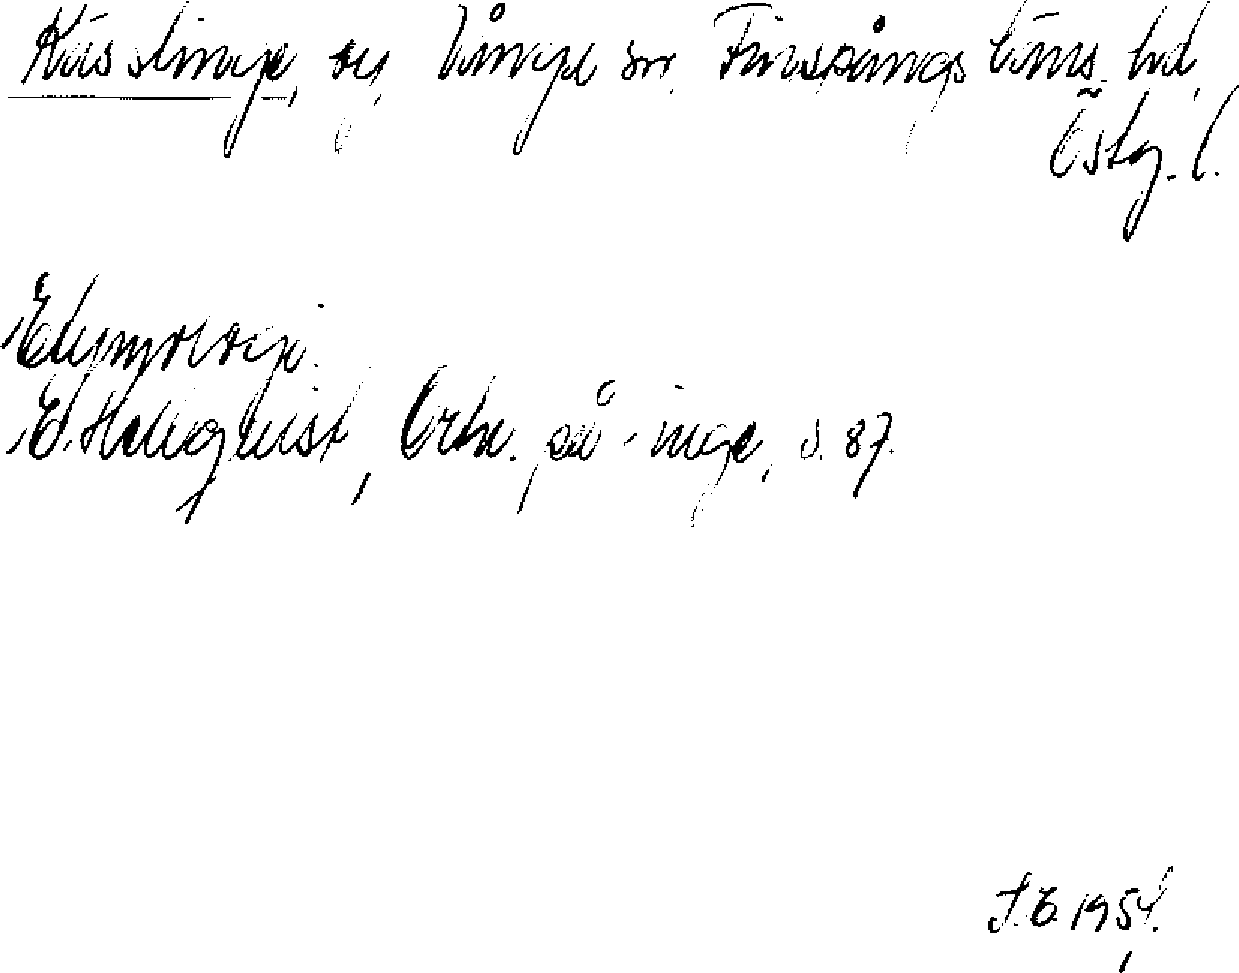 Käss linge, by, Vånga sn, Finspångs läns hd,
Östg. l.
Etymologi.
E. Hellquist, Ortn. på -inge, s. 87.
J.E. 1954.